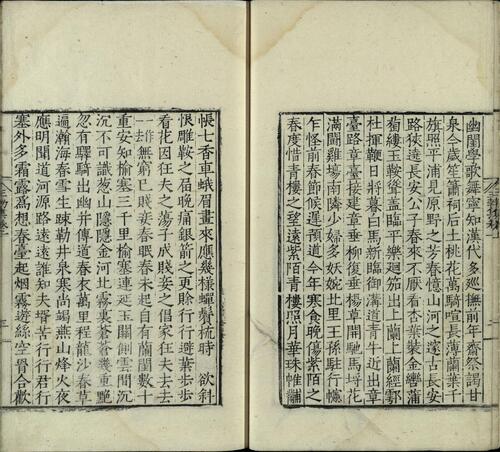 幽閨學歌舞寧知漢代多巡撫前年齋祭謁甘
泉今歲笙簫祠后土桃花萬騎喧長薄蘭葉千
旗照平浦見原野之芳春憶山河之邃古長安
路狹遶長安公子春來不厭看杏葉裝金轡蒲
萄縷玉鞍聳蓋臨平樂廻笳出上蘭上蘭經鄠
杜揮鞭日將暮白馬新臨御溝道青牛近出章
臺路章臺接建章垂柳復垂楊草開馳馬埒花
滿鬬雞場南隣少婦多妖婉北里王孫駐行幰
乍怪前春節候遲預道今年寒食晚傷紫陌之
春度惜青樓之望遠紫陌青樓照月華珠帷黼
帳七香車蛾眉畫來應幾樣蟬鬢梳時欲斜
恨雕鞍之屆晚痛銀箭之更賒行行避葉步步
看花因狂夫之蕩子成賤妾之倡家狂夫去去
一作一去無窮巳賤妾春眠春未起自有蘭閨數十
重安知榆塞三千里榆塞連延玉關雲間沉
沉不可識葱山隱隱金河北霧裏蒼蒼幾重艶
忽有驛騎出幽并傳道春衣萬里程龍沙春草
遍瀚海春雪生疎勒井泉寒尚竭燕山烽火夜
應明聞道河源路遠遠誰知夫壻苦行行君行
塞外多霜露爲想春臺起烟霧遊絲空罥合歡